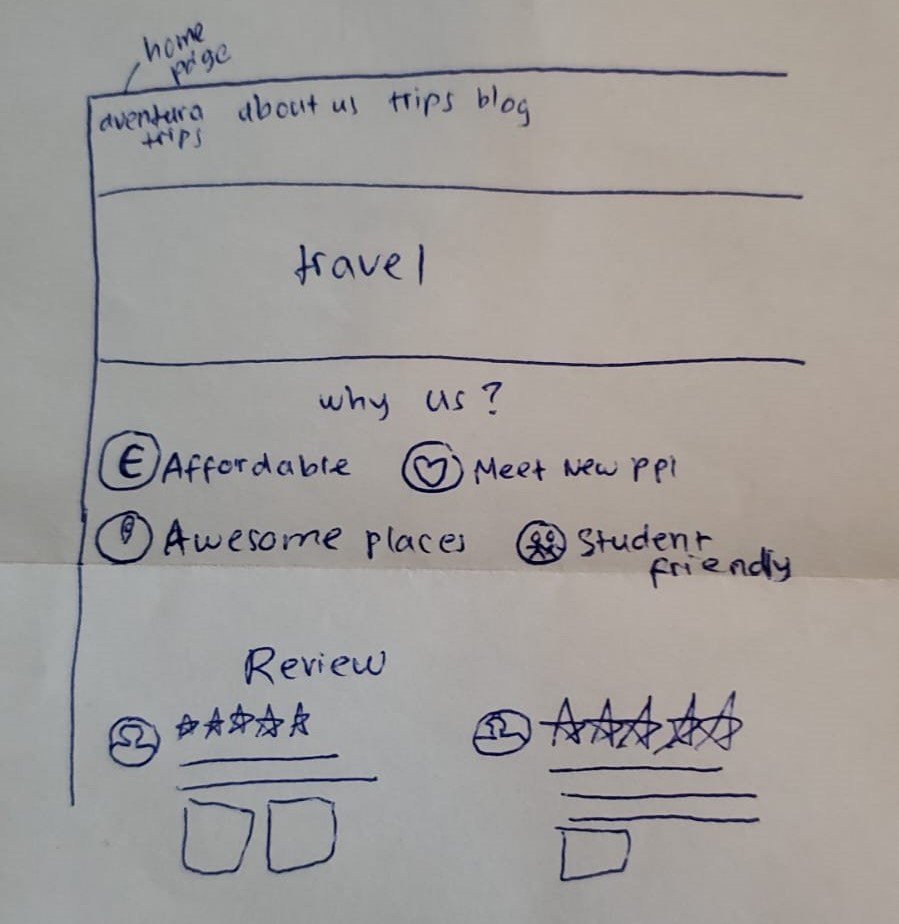 home
page
aventura about us trips blog
trips
travel
why us?
€ Affordable Meet New ppl
Awesome places Student
friendly
Review